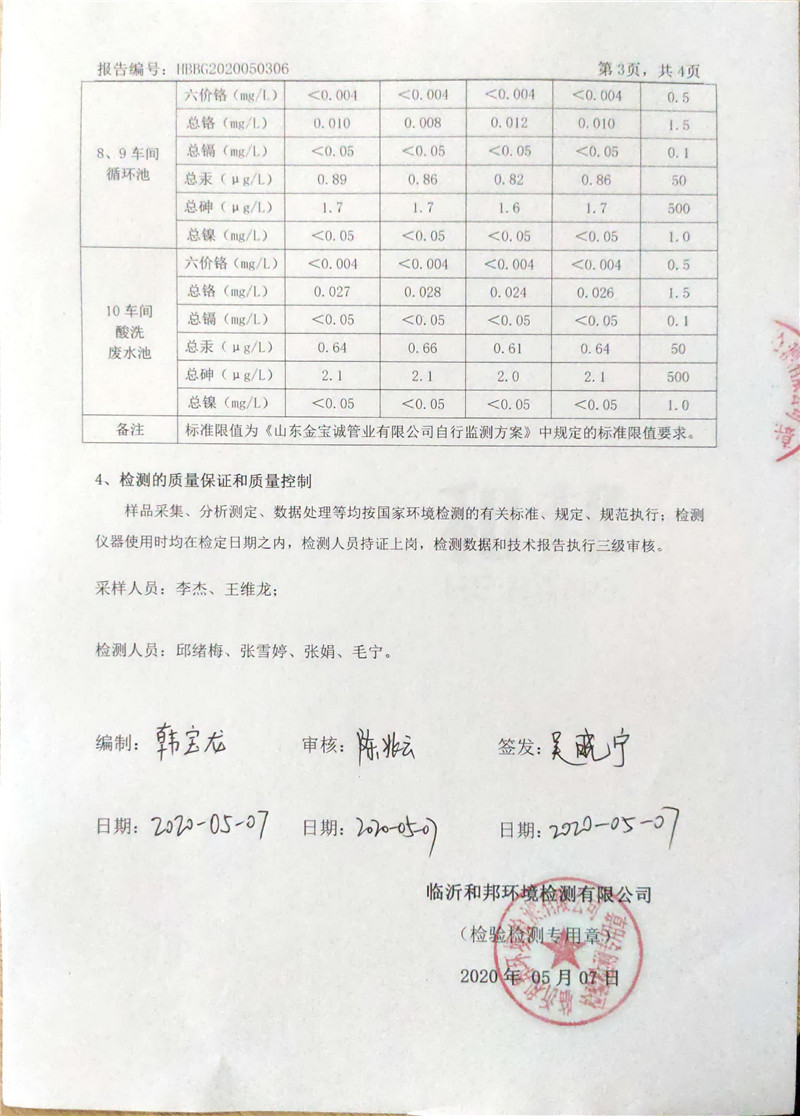 报告编号：HBBG2020050306 第3页，共4页
8、9车间
循环池
六价铬（mg/L） ＜0.004 ＜0.004 ＜0.004 ＜0.004 0.5
总铬（mg/L） 0.010 0.008 0.012 0.010 1.5
总镉（mg/L） ＜0.05 ＜0.05 ＜0.05 ＜0.05 0.1
总汞（μg/L） 0.89 0.86 0.82 0.86 50
总砷（μg/L） 1.7 1.7 1.6 1.7 500
总镍（mg/L） ＜0.05 ＜0.05 ＜0.05 ＜0.05 1.0
10车间
酸洗
废水池
六价铬（mg/L） ＜0.004 ＜0.004 ＜0.004 ＜0.004 0.5
总铬（mg/L） 0.027 0.028 0.024 0.026 1.5
总镉（mg/L） ＜0.05 ＜0.05 ＜0.05 ＜0.05 0.1
总汞（μg/L） 0.64 0.66 0.61 0.64 50
总砷（μg/L） 2.1 2.1 2.0 2.1 500
总镍（mg/L） ＜0.05 ＜0.05 ＜0.05 ＜0.05 1.0
备注 标准限值为《山东金宝诚管业有限公司自行监测方案》中规定的标准限值要求。
4、检测的质量保证和质量控制
样品采集、分析测定、数据处理等均按国家环境检测的有关标准、规定、规范执行；检测
仪器使用时均在检定日期之内，检测人员持证上岗，检测数据和技术报告执行三级审核。
采样人员：李杰、王维龙；
检测人员：邱绪梅、张雪婷、张娟、毛宁。
编制：韩宝龙 审核：陈兆云 签发：吴晓宁
日期：2020-05-07 日期：2020-05-07 日期：2020-05-07
临沂和邦环境检测有限公司
（检验检测专用章）
2020年05月07日